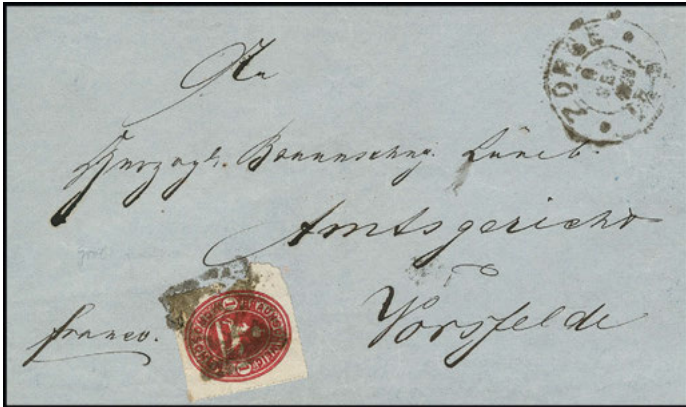 An
Herzogl. Braunschwg. Lüneb.
Amtsgericht
Vorsfelde
franco.
ZORGE